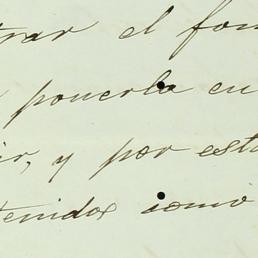 trar el fon
ponerla en
ir, y por esta
tenidos como